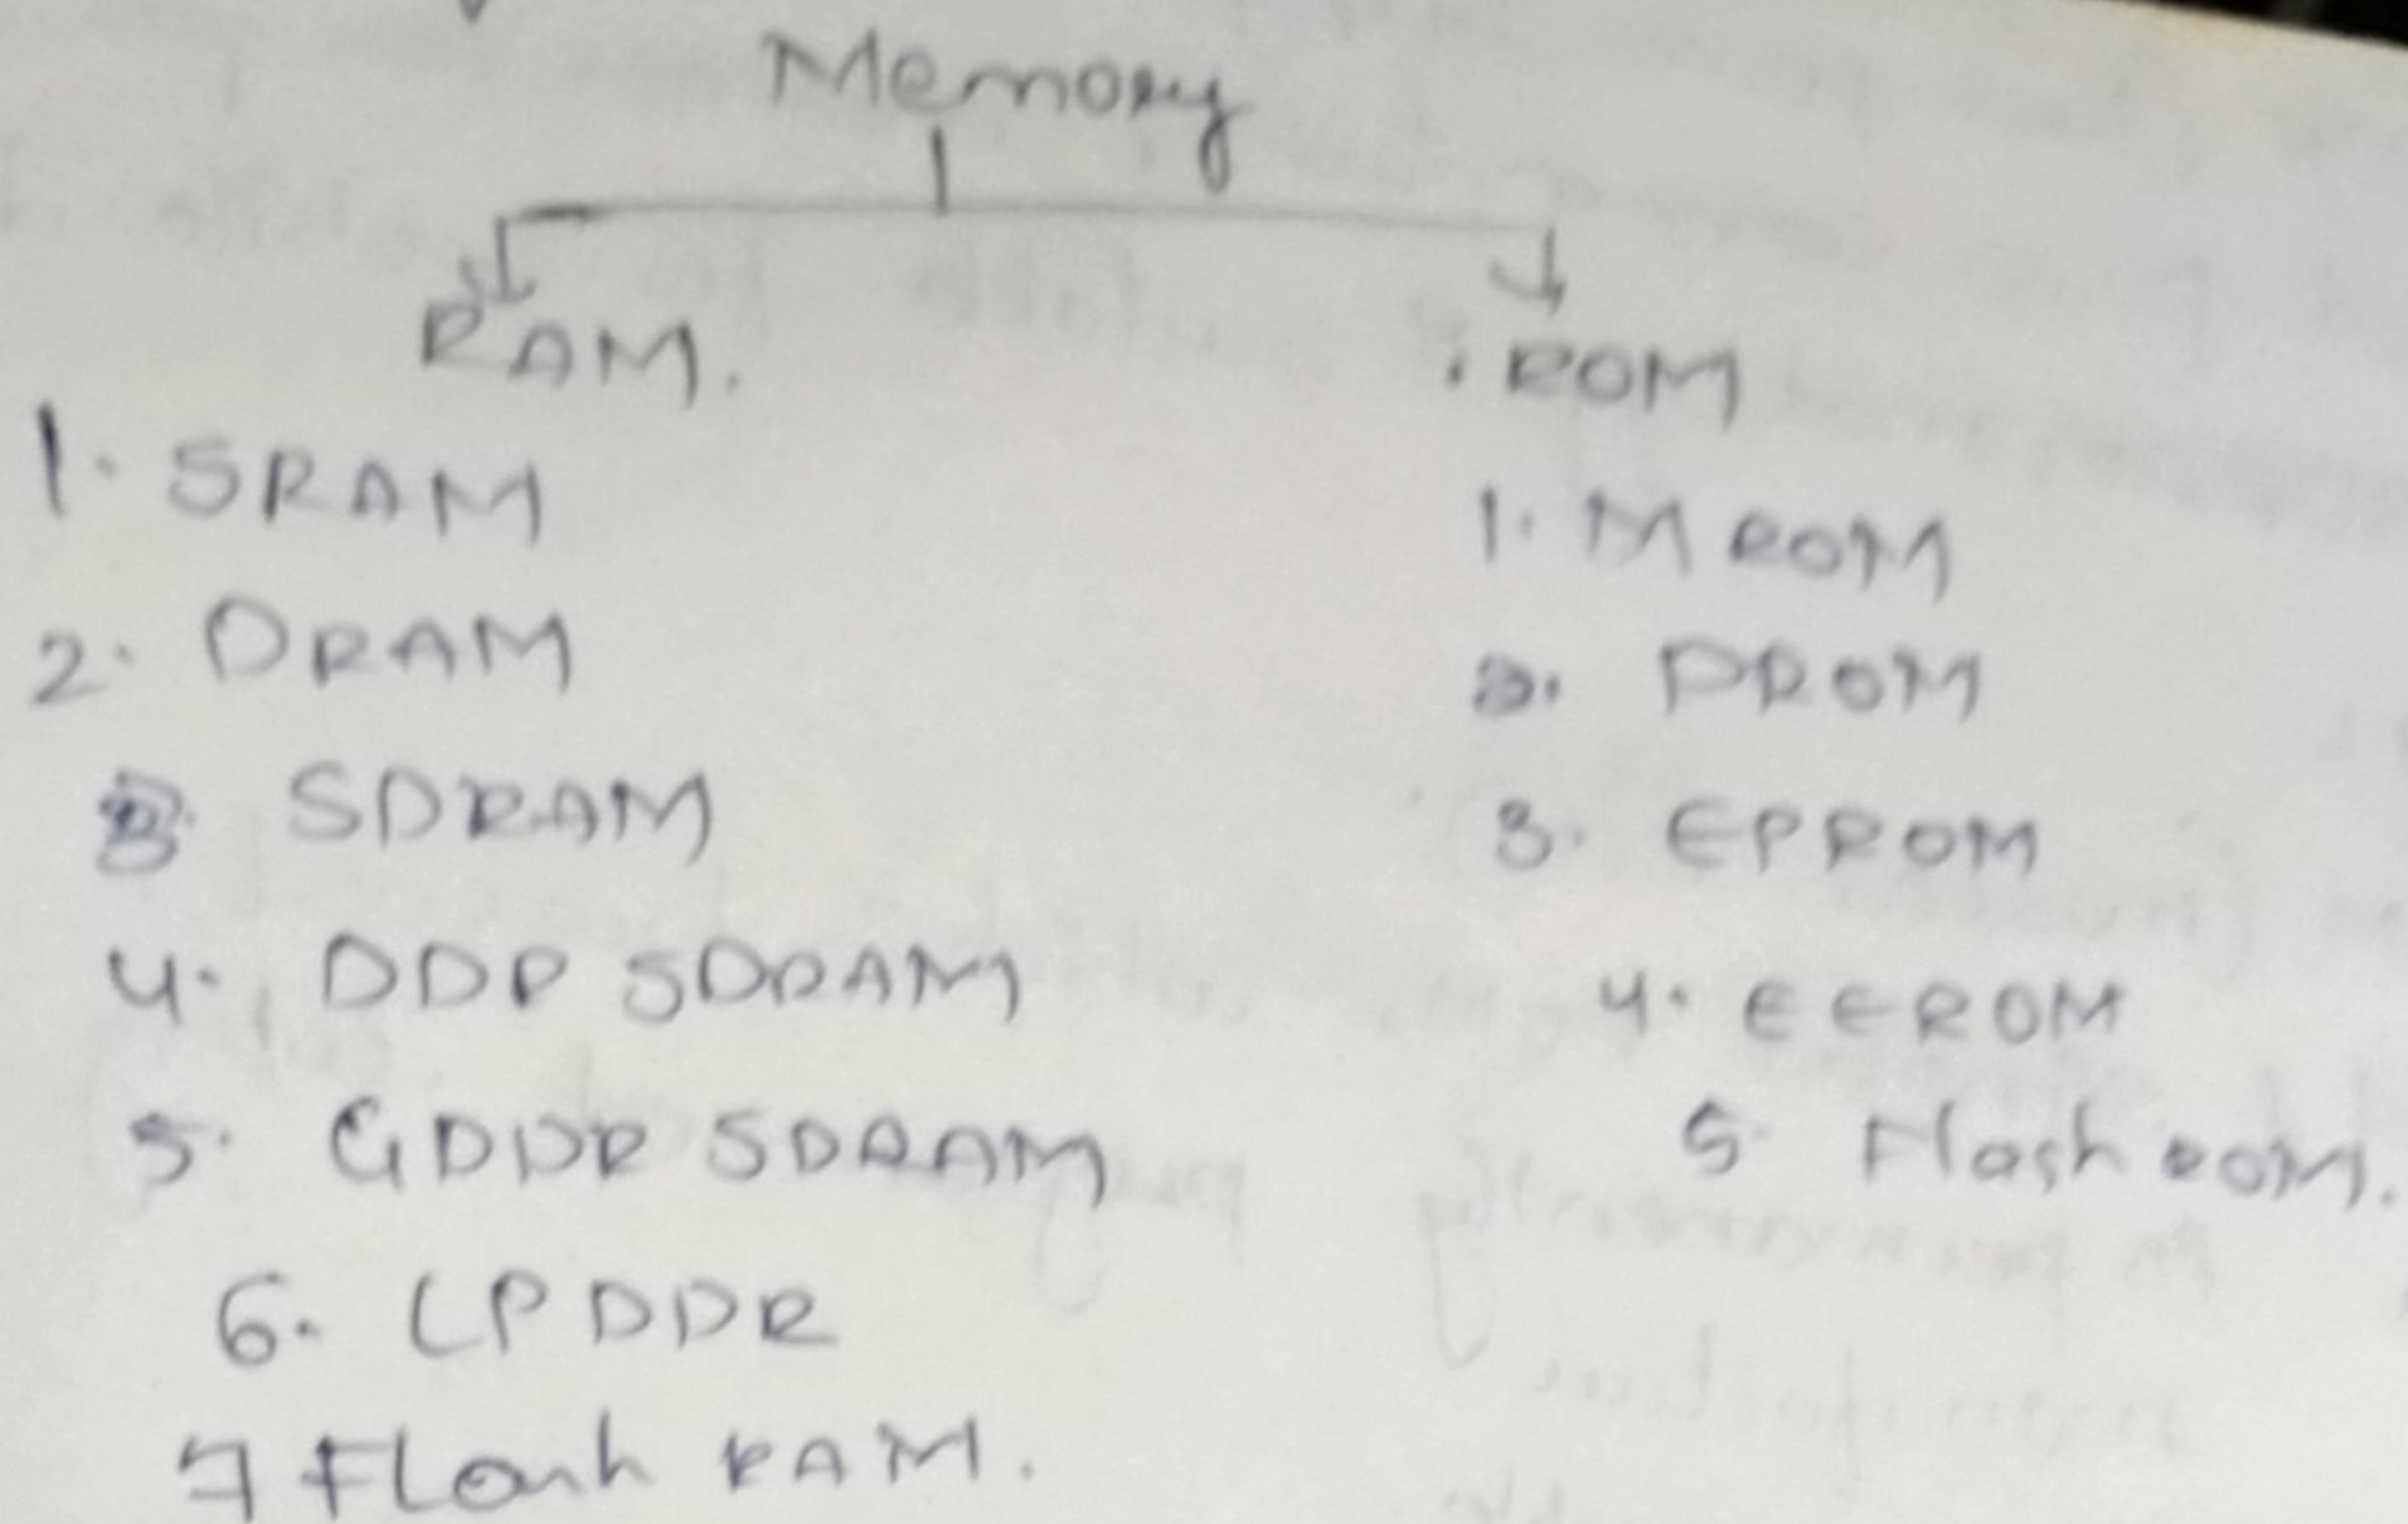 Memory
RAM.
1. SRAM
2. DRAM
3. SDRAM
4. DDR SDRAM
5. GDDR SDRAM
6. LPDDR
7 Flash RAM.
. ROM
1. MROM
2. PROM
3. EPROM
4. EEROM
5. Flash ROM.